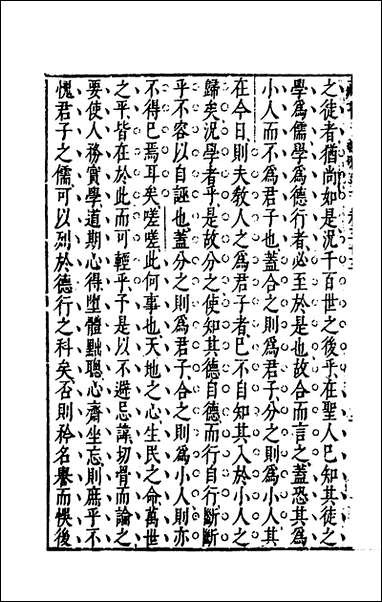 之徒者猶尚如是況千百世之後乎在聖人已知其徒之
學為儒學為德行者必至於是也故合而言之蓋恐其為
小人而不為君子也蓋合之則為君子分之則為小人其
在今日則夫教人之為君子者已不自知其入於小人之
歸矣況學者乎是故分之使知其德自德而行自行斷斷
乎不容以自誣也蓋分之則為君子合之則為小人則亦
不得已焉耳矣嗟嗟此何事也天地之心生民之命萬世
之平皆在於此而可輕乎子是以不避忌諱切骨而論之
要使人務實學道期心得墮體黜聰心齋坐忘則庶乎不
愧君子之儒可以列於德行之科矣否則矜名譽而悞後